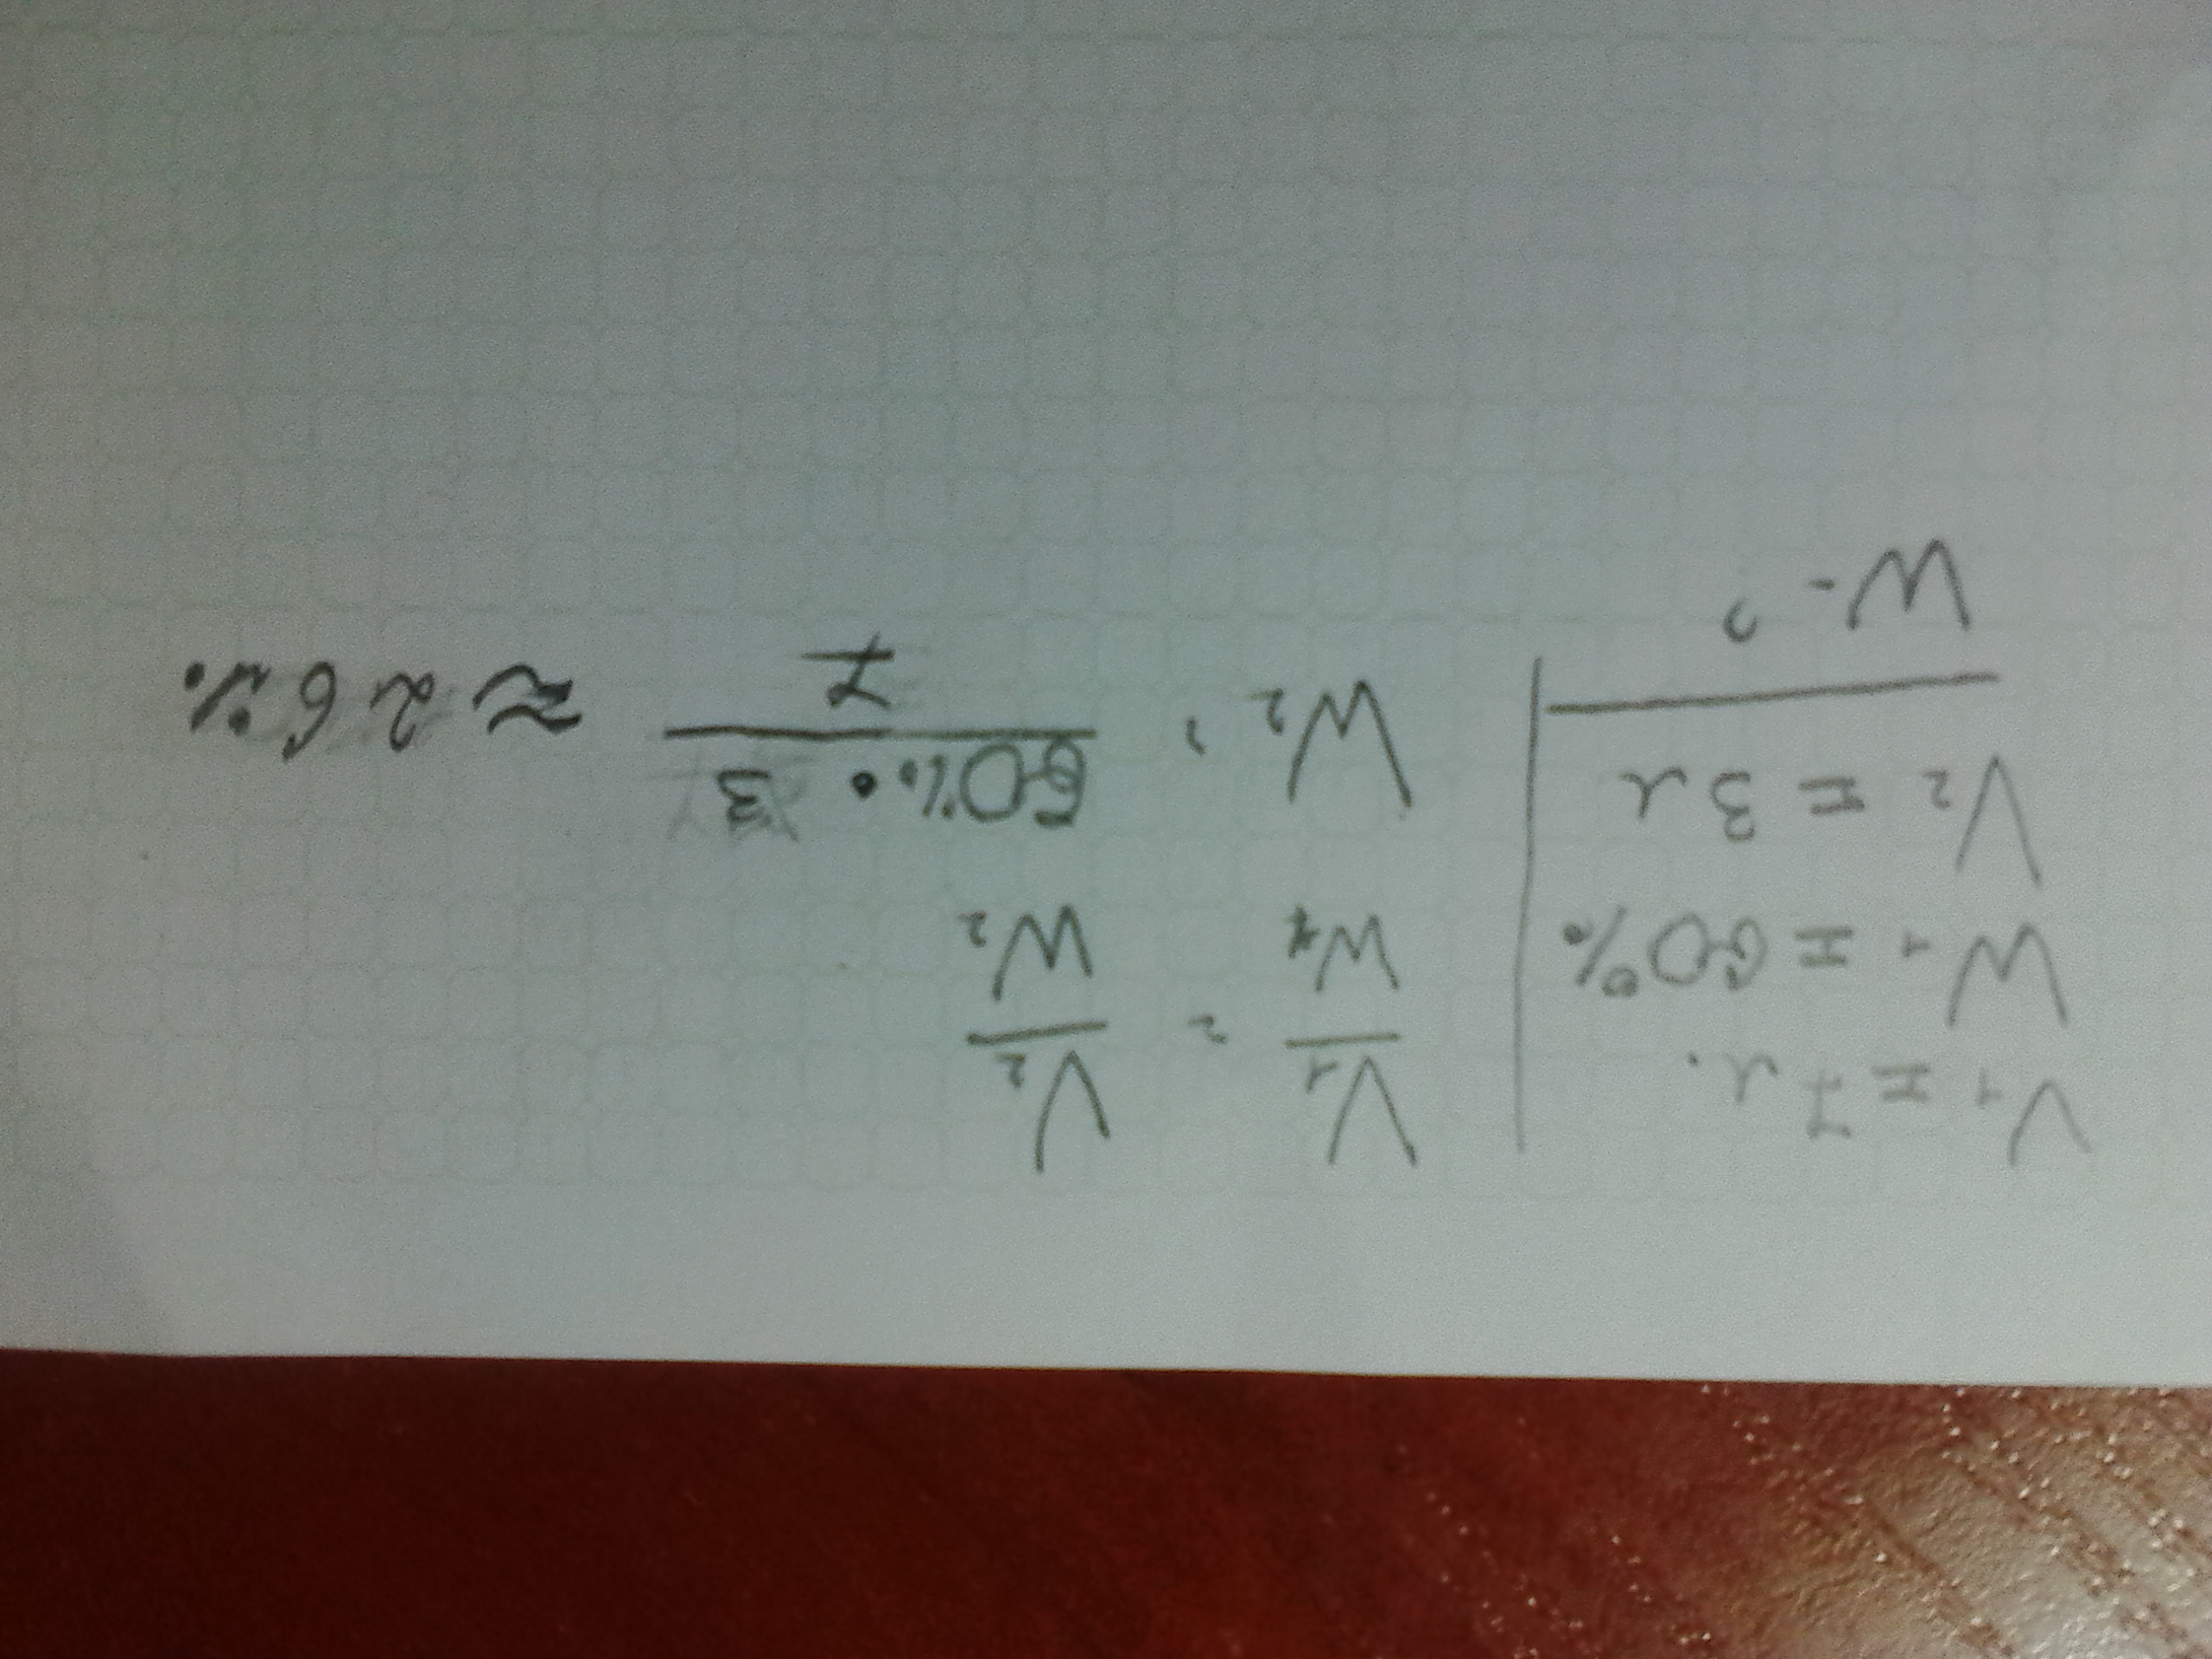 V₁ = 7 л.
W₁ = 60%
V₂ = 3 л
W - ?
V₁/W₁ = V₂/W₂
W₂ = 60% · 3 / 7 ≈ 26%